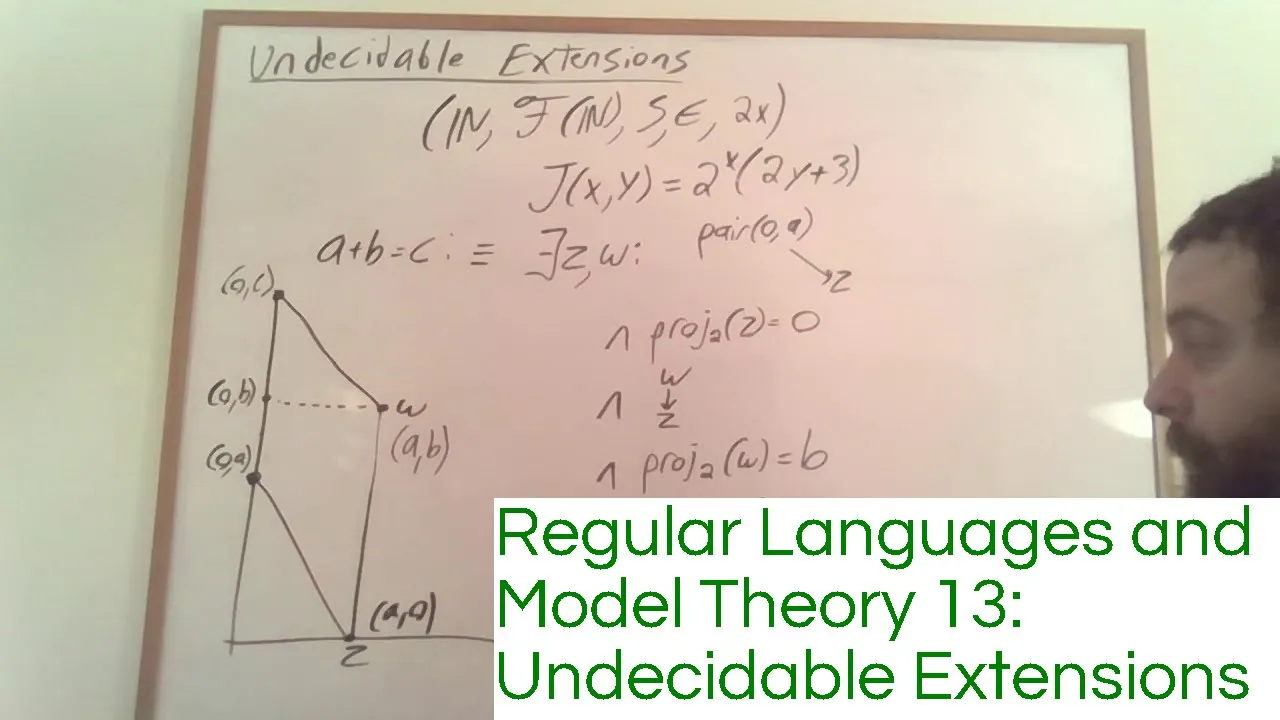 Undecidable Extensions
(ℕ, ℱ(ℕ), S, ∈, 2x)
J(x,y) = 2^x(2y+3)
a+b=c : ≡ ∃z,w: pair(0,a)
↘z
∧ proj₂(z)=0
w
∧ ↓
z
∧ proj₂(w)=b
(0,c)
(0,b)
w
(a,b)
(0,a)
(a,0)
z
Regular Languages and
Model Theory 13:
Undecidable Extensions